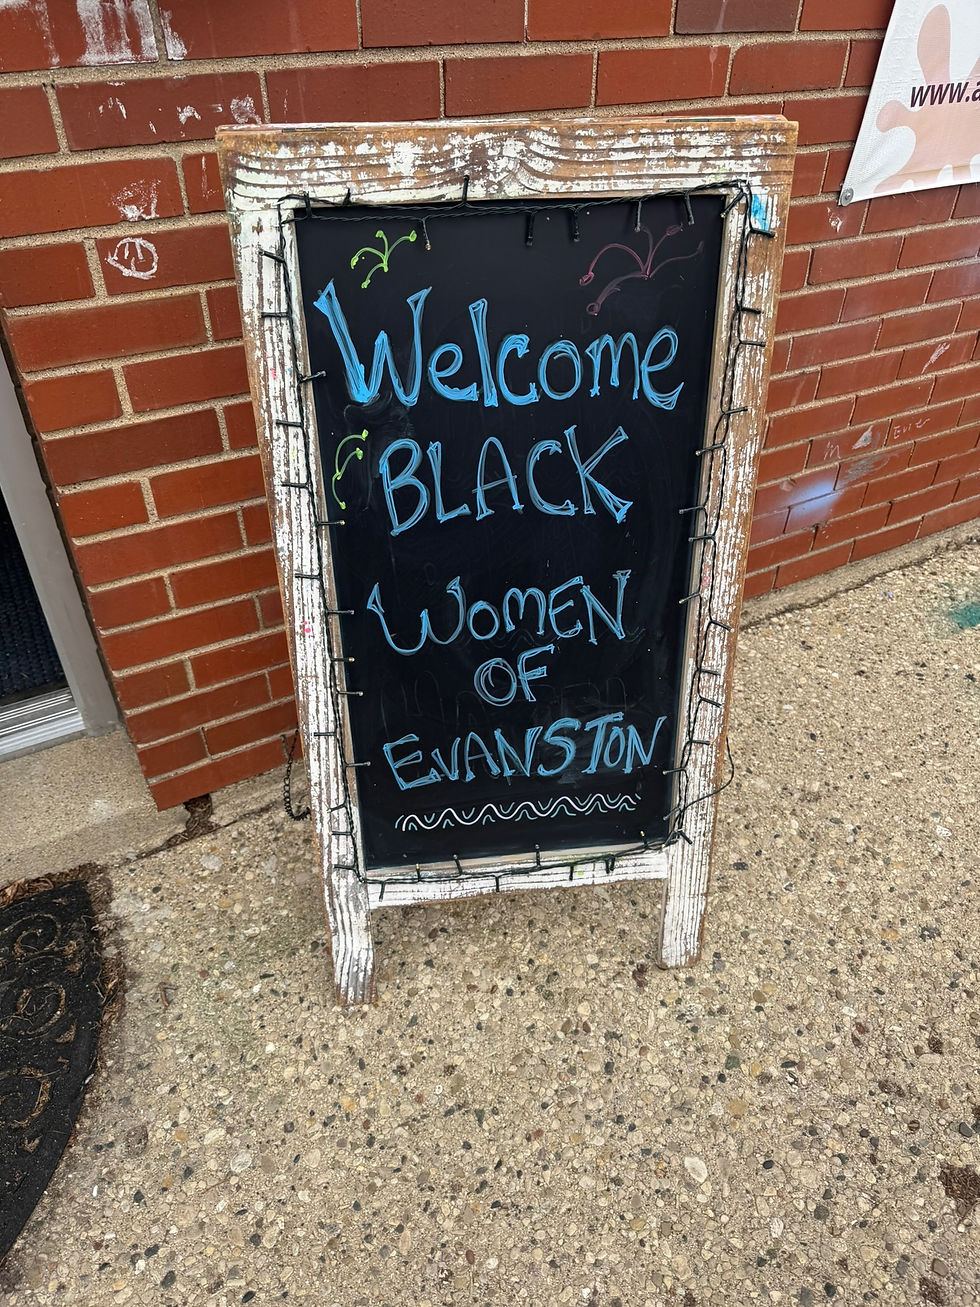 Welcome
BLACK
WOMEN
OF
EVANSTON
www.a